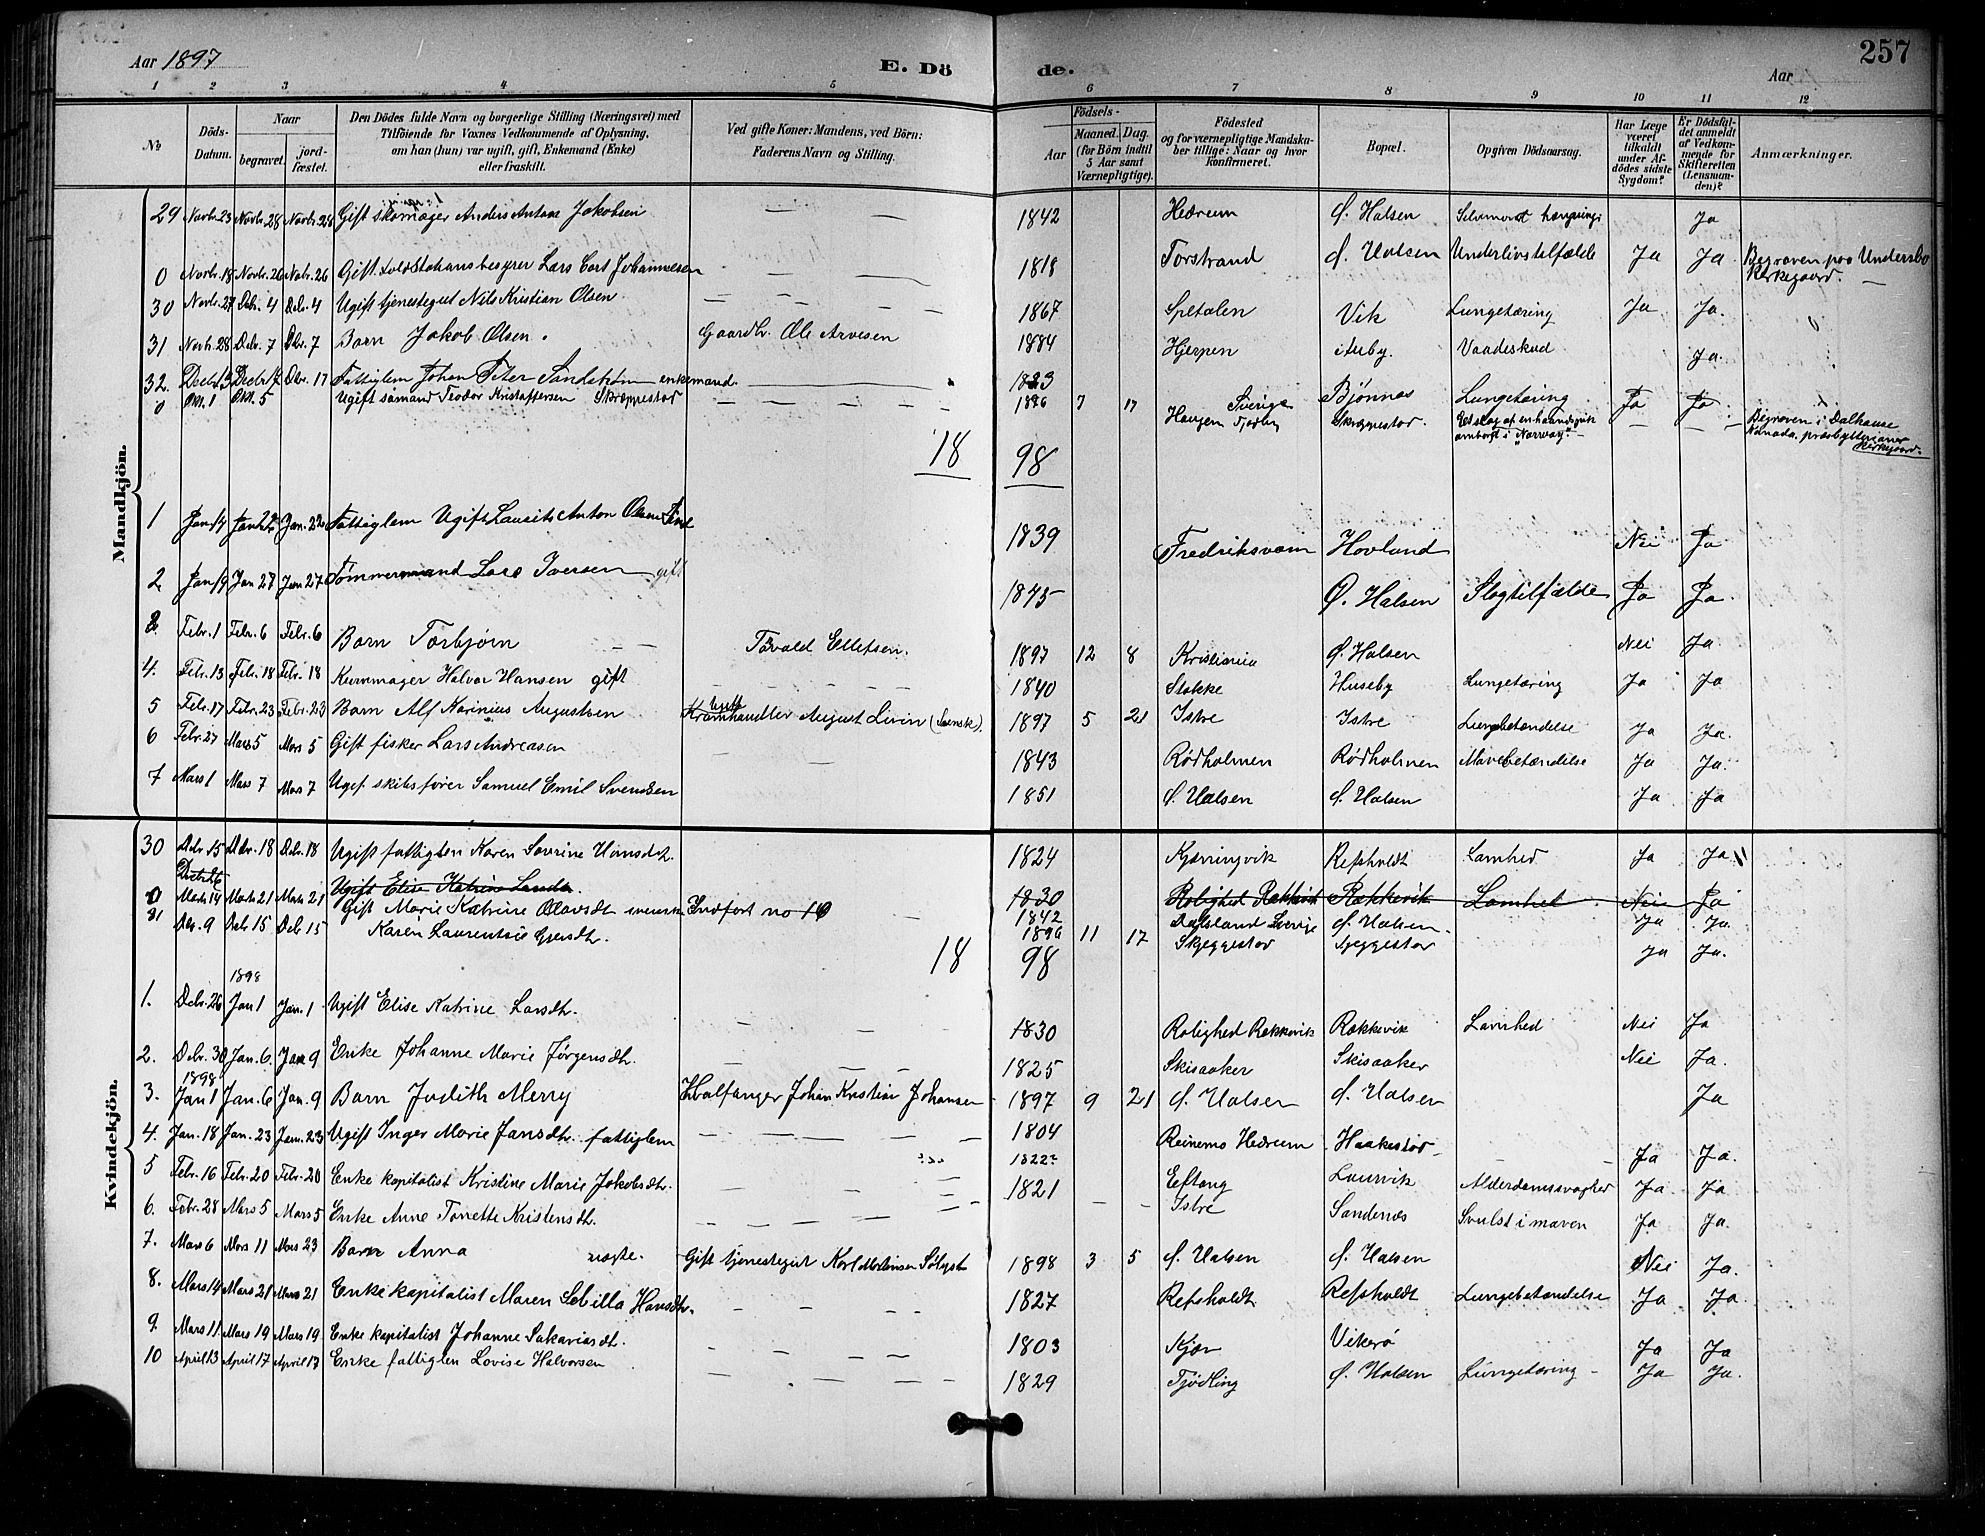 Aar 1897
E. Dö
de.
Aar
257
1 2 3 4 5 6 7 8 9 10 11 12
No
Döds-Datum.
Naar
begravet.
jord-fæstet.
Den Dödes fulde Navn og borgerlige Stilling (Næringsvei) med
Tilföiende for Voxnes Vedkommende af Oplysning,
om han (hun) var ugift, gift, Enkemand (Enke)
eller fraskilt.
Ved gifte Koner: Mandens, ved Börn:
Faderens Navn og Stilling.
Födsels-
Aar
Maaned. Dag.
(for Börn indtil
5 Aar samt
Værnepligtige).
Födested
og for værnepligtige Mandska-
ber tillige: Naar og hvor
konfirmeret.
Bopæl.
Opgiven Dödsaarsag.
Har Læge
været
tilkaldt
under Af-
dödes sidste
Sygdom?
Er Dödsfal-
det anmeldt
af Vedkom-
mende for
Skifteretten
(Lensman-
den)?
Anmærkninger.
Mandkjön.
29 Novbr. 23 Novbr. 28 Novbr. 28 Gift skomager Anders Anton Jakobsen — — 1842 Hedrum Ø. Halsen Selvmord hængning Ja
0 Novbr. 18 Novbr. 26 Novbr. 26 Gift Lars Carl Johannesen — — — 1818 Torstrand Ø. Halsen Underlivstilfælde Ja Ja Begraven paa Undersbo Kirkegaard. —
30 Novbr. 27 Debr. 4 Debr. 4 Ugift tjenestegut Nils Kristian Olsen — — — — 1867 Spetalen Vik Lungetæring Ja Ja.
31 Novbr. 28 Debr. 7 Dbr. 7 Barn Jakob Olsen. Gaardbr. Ole Arvesen 1884 Hjerpen Auby. Vaadeskud Ja.
32. Decbr. 13 Decbr. 17 Dbr. 17 Fattiglem Johan Peter Sandstrøm enkemand. 1823 Sverige Bjønnes Lungetæring Ja Ja
0 Okt. 1 Okt. 5 Ugift sømand Teodor Kristoffersen Skræppestad — — — — 1876 7 17 Haugen Tjødling Skræppestad. ombord i "Norway". — — — — Begraven i Dalhause Kanada, presbyterianer kirkegaard.
18 98
1 Jan. 14 Jan. 22 Jan. 22 Fattiglem Ugift Laurits Anton Olsen 1839 Fredriksværn Hovland Nei Ja
2 Jan. 19 Jan 27 Jan 27 Tømmermand Lars Iversen gift 1845 Ø. Halsen Slagtilfælde Ja Ja.
3. Febr. 1 Febr. 6 Febr. 6 Barn Torbjørn — — Torvald Ellefsen. 1897 12 8 Kristiania Ø. Halsen Nei Ja.
4. Febr. 13 Febr. 18 Febr. 18 Kurvmager Halvor Hansen gift — — — — 1840 Stokke Huseby Lungetæring Ja Ja
5 Febr. 17 Febr. 23 Febr. 23 Barn Alf Karinius Augustsen Kramhandler August Livin (Svensk). 1897 5 21 Istre Istre Lungebetændelse Ja Ja.
6 Febr. 27 Mars 5 Mars 5 Gift fisker Lars Andreasen — 1843 Rødholmen Rødholmen Mavebetændelse Ja Ja.
7 Mars 1 Mars 7 Mars 7 Ugift skibsfører Samuel Emil Svendsen 1851 Ø. Halsen Ø. Halsen Ja Ja
Kvindekjön.
30 Debr. 15 Debr. 18 Debr. 18 Ugift fattiglem Karen Severine Hansdt. 1824 Kjærringvik Refsholdt Lamhed Ja Ja
Decbr. 26 Ugift Elise Katrine Larsdt. 1830 Rolighed Rækkevik Rækkevik Lamhed Nei Ja
0 Mars 14 Mars 21 Mars 21 Gift Marie Katrine Olavsdt. svensk Indført no 10 1842 Dalsland Sverige Ø. Halsen. Ja Ja.
31 Dec. 9 Debr 15 Debr 15 Karen Laurentsie 1896 11 17 Skjeggestad Ja Ja.
18 98
1898
1. Debr. 26 Jan 1 Jan. 1 Ugift Elise Katrine Larsdt. — — 1830 Rolighed Rækkevik Rækkevik Lamhed Nei Ja
2. Debr. 30 Jan. 6. Jan 9 Enke Johanne Marie Jørgensdt. — — — 1825 Skisaaker Skisaaker Nei Ja.
1898
3. Jan 1 Jan. 6 Jan. 9 Barn Judith Merry Hvalfanger Johan Kristian Johansen 1897 9 21 Ø. Halsen Ø. Halsen Ja
4. Jan. 18 Jan. 23 Jan. 23 Ugift Inger Marie Jansdt. fattiglem — — — — 1804 Reinemo Hedrum Haakestad — — Ja Ja.
5 Febr. 16 Febr. 20 Febr. 20 Enke kapitalist Kristine Marie Jakobsdt. — — — 1822? Eftang Laurvik Alderdomssvaghed Ja. Ja
6. Febr. 28 Mars 5 Mars 5 Enke Anne Tonette Kristensdt. — — — — 1821 — — Istre Sandenæs Svulst i maven Ja Ja.
7. Mars 6 Mars 11 Mars 23 Barn Anna uægte. Gift tjenestegut Karl Mortinsen 1898 3 5 Ø. Halsen Ø. Halsen Nei Ja.
8. Mars 14 Mars 21 Mars 21 Enke kapitalist Maren Sebilla Hansdt. — — — 1827 Refsholdt Refsholdt Lungebetændelse Ja Ja.
9. Mars 11 Mars 19 Mars 19. Enke kapitalist Johanne Sakariasdt. — — — — 1803 Kjær Vikerø Ja Ja
10 April 13 April 17 April 17 Enke fattiglem Lovise Halvorsen — — — — 1829 Tjødling Ø. Halsen Lungetæring — Ja Ja.